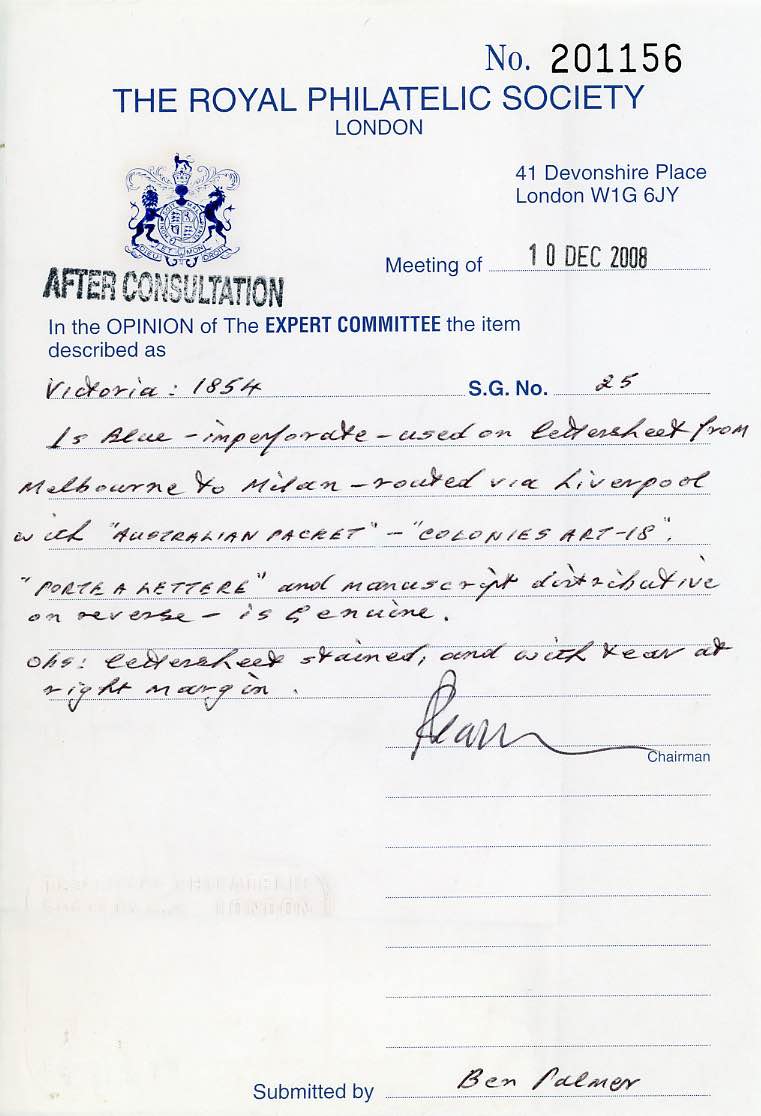 No. 201156
THE ROYAL PHILATELIC SOCIETY
LONDON
41 Devonshire Place
London W1G 6JY
DIEU ET MON DROIT
Meeting of 10 DEC 2008
AFTER CONSULTATION
In the OPINION of The EXPERT COMMITTEE the item
described as
Victoria: 1854 S.G. No. 25
1s Blue - imperforate - used on lettersheet from
Melbourne to Milan - routed via Liverpool
with "AUSTRALIAN PACKET" - "COLONIES ART-18",
"PORTE A LETTERE" and manuscript distributive
on reverse - is genuine.
Obs: lettersheet stained, and with tear at
right margin.
Chairman
Submitted by Ben Palmer